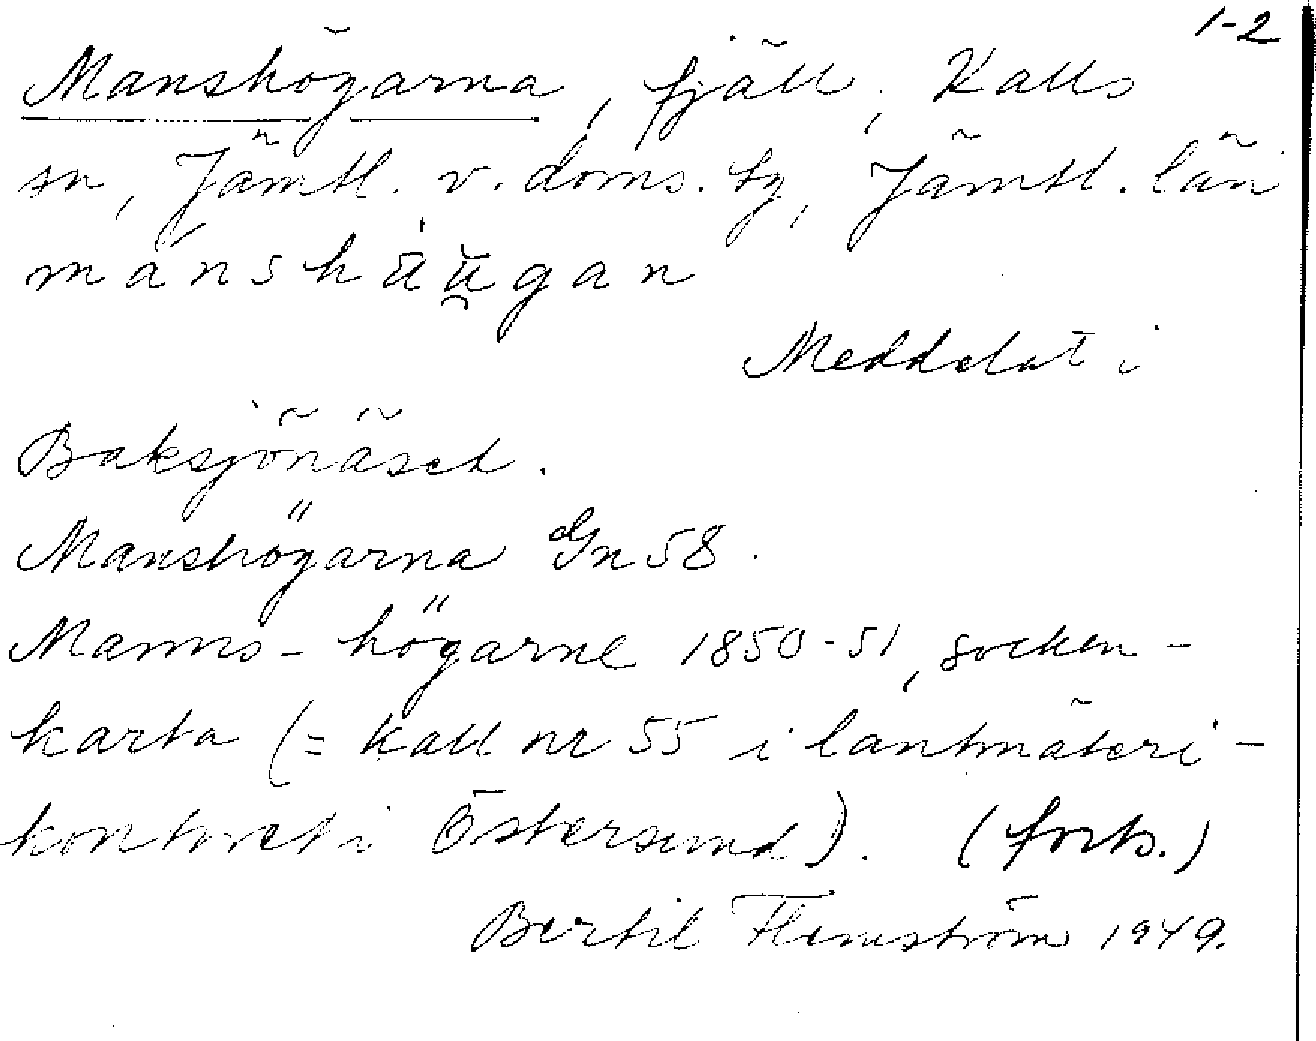 1-2
Manshögarna, fjäll, Kalls
sn, Jämtl. v. doms. tg, Jämtl. län
mánshä̀u̯gan
Meddelat i
Baksjönäset.
Manshögarna Gn 58.
Manns-högarne 1850-51, socken-
karta (= Kall nr 55 i lantmäteri-
kontoret i Östersund). (forts.)
Bertil Flemström 1949.